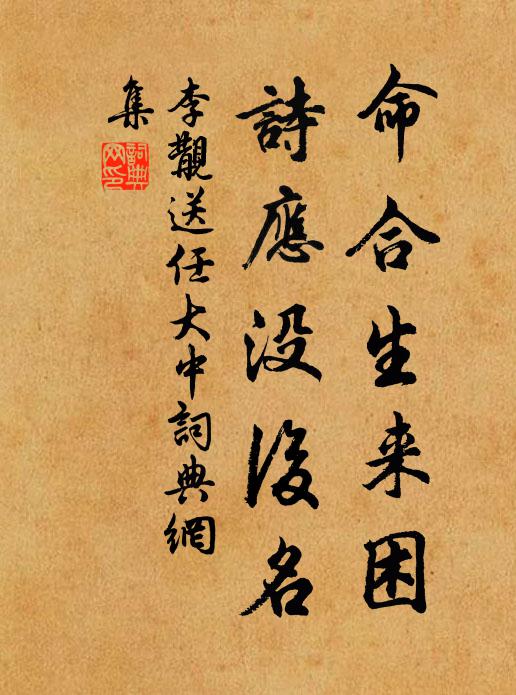 命合生来困
詩應没後名
李覯送任大中詞典網
集
詞典網印